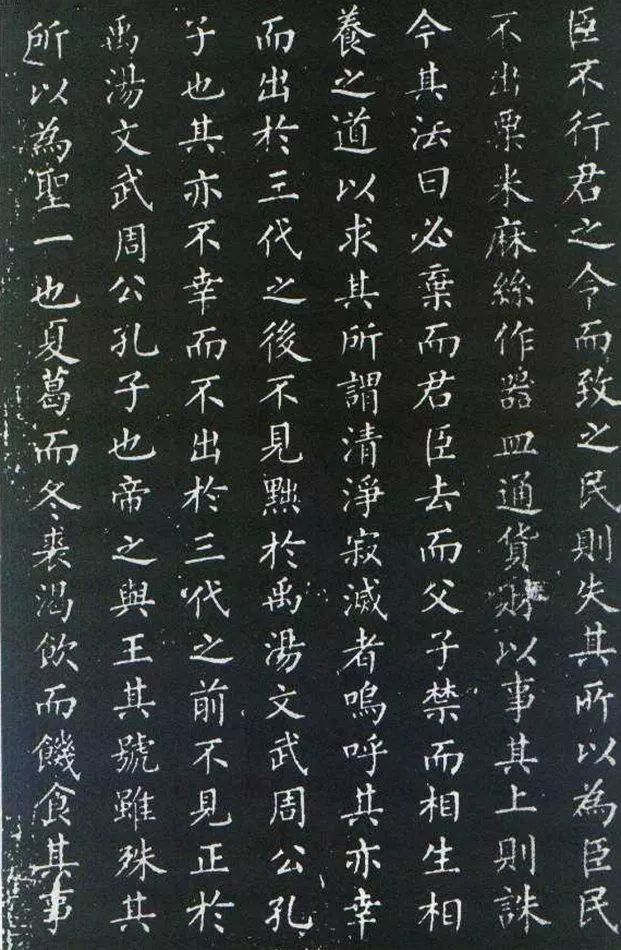 臣不行君之令而致之民則失其所以為臣民
不出粟米麻絲作器皿通貨財以事其上則誅
今其法曰必棄而君臣去而父子禁而相生相
養之道以求其所謂清淨寂滅者嗚呼其亦幸
而出於三代之後不見黜於禹湯文武周公孔
子也其亦不幸而不出於三代之前不見正於
禹湯文武周公孔子也帝之與王其號雖殊其
所以為聖一也夏葛而冬裘渴飲而饑食其事